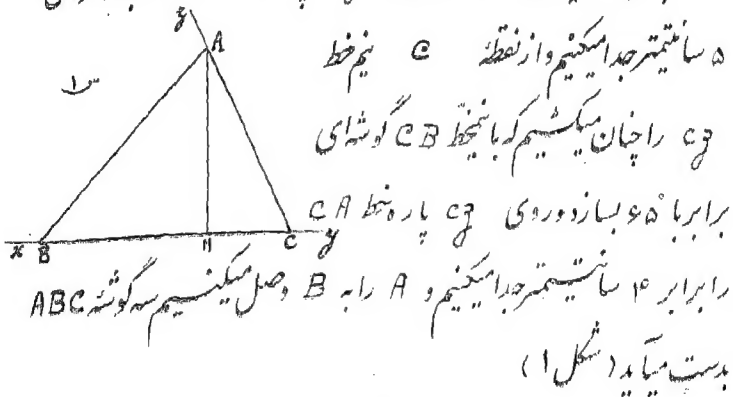 ۵ سانتیمتر جدا میکنیم و از نقطهٔ C نیم خط
Cz را چنان میکشیم که با نیمخط CB گوشه‌ای
برابر با ۶۵° بسازد و روی Cz پاره خط CA
را برابر ۴ سانتیمتر جدا میکنیم و A را به B وصل میکنیم سه گوشه ABC
بدست میآید (شکل ۱)
z
A
ش ۱
x B H C y